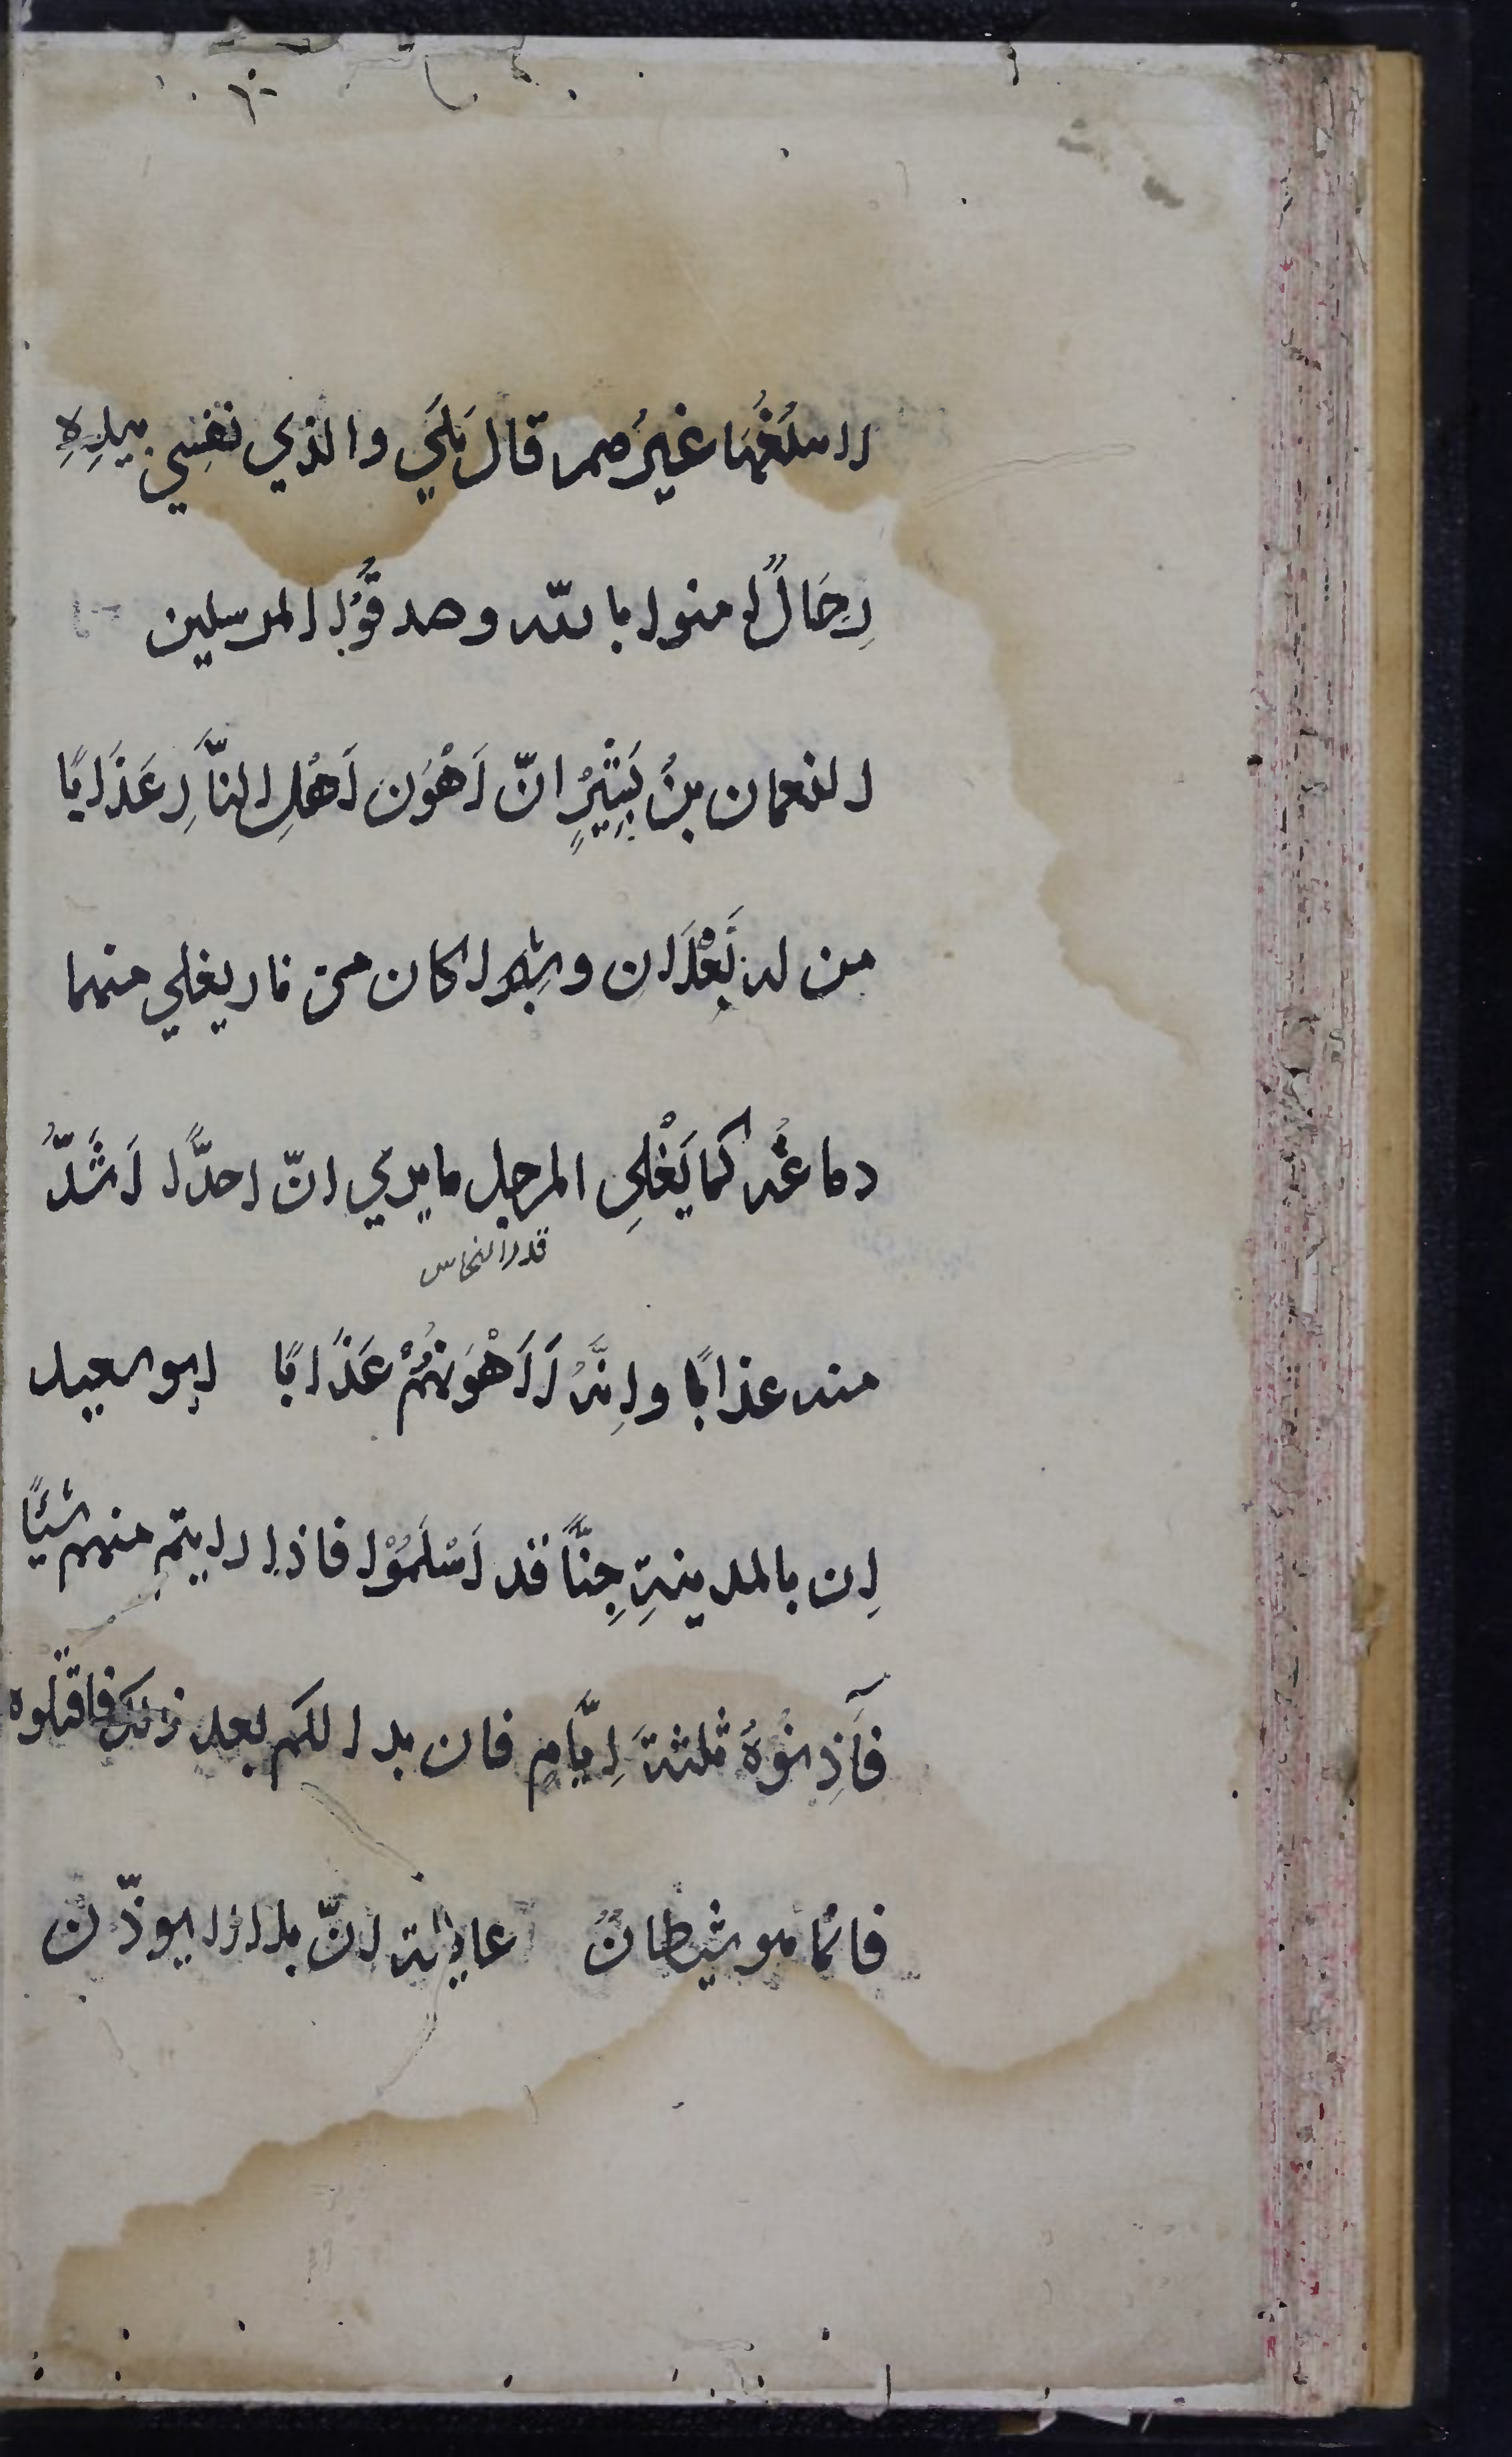 لا يبلغُهَا غيرُهم قال بَلَي والذي نفسِي بيدِهِ
رِجَالٌ امنوا بالله وصدقُوا المرسلين
النعمان بنُ بَشِيْرٍ انّ اَهْوَن اَهْلِ النَّارِ عَذَابًا
من له نَعْلَان وشِراكان من نار يغلي منهما
دماغُه كما يَغْلِي المرجل ما يري انّ احدًا اَشَدُّ
قدر النحاس
منه عذابًا وانَّهُ لَاَهْوَنُهُمْ عَذَابًا ابو سعيد
اِن بالمدينةِ جِنًّا قد اَسْلَمُوْا فاذا رايتم منهم شيًا
فَآذِنُوْهُ ثلثةَ ايَّامٍ فان بدا لكم بعد ذلك فاقتلوه
فانّما هو شيطانٌ عايشة انّ بلالا يوذّن